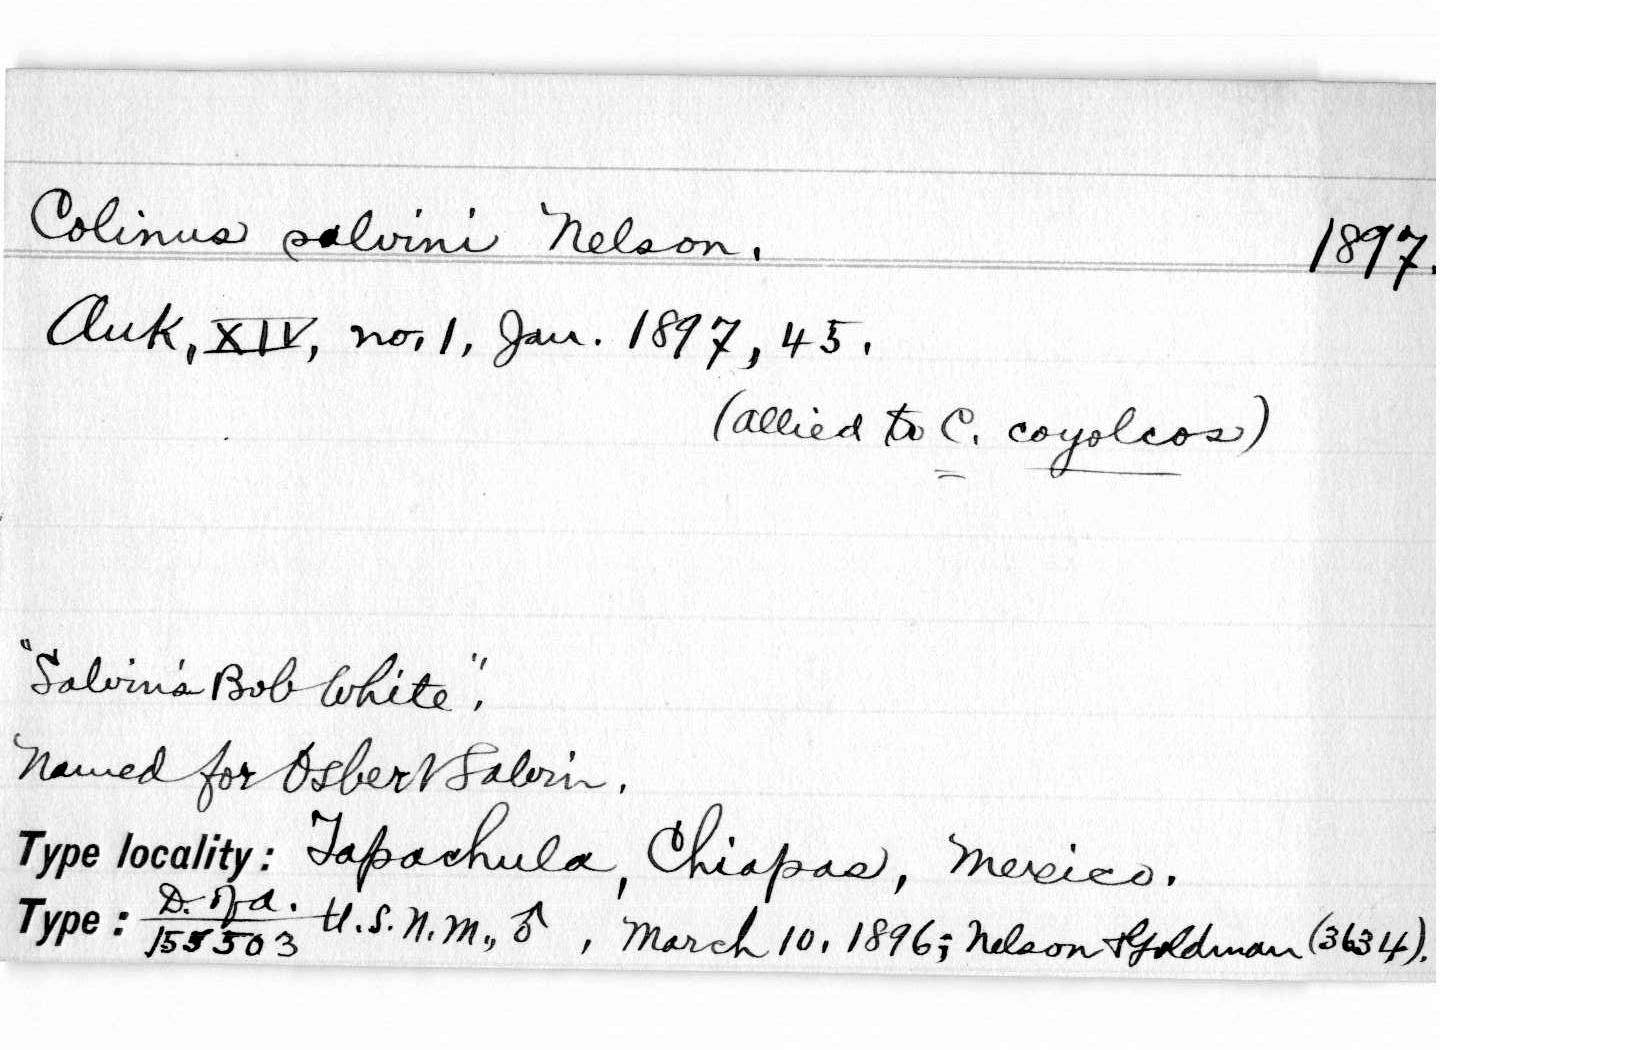 Colinus salvini Nelson. 1897.
Auk, XIV, no. 1, Jan. 1897, 45.
(allied to C. coyolcos)
"Salvin's Bob White".
Named for Osbert Salvin.
Type locality: Tapachula, Chiapas, Mexico.
D. of A.
Type: 155503 U.S.N.M., ♂, March 10, 1896; Nelson & Goldman (3634).